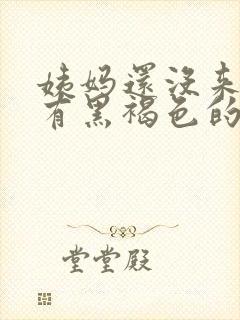 姨妈還没来
有黑褐色的
堂堂殿